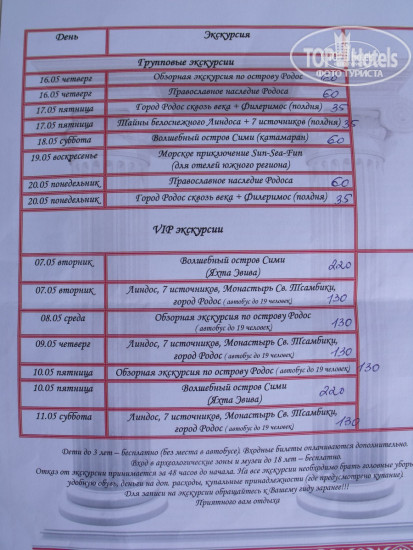 TOP Hotels
ФОТО ТУРИСТА
День Экскурсия
Групповые экскурсии
16.05 четверг Обзорная экскурсия по острову Родос 60
16.05 четверг Православное наследие Родоса 60
17.05 пятница Город Родос сквозь века + Филеримос (полдня) 35
17.05 пятница Тайны белоснежного Линдоса + 7 источников (полдня) 35
18.05 суббота Волшебный остров Сими (катамаран) 60
19.05 воскресенье Морское приключение Sun-Sea-Fun
(для отелей южного региона)
20.05 понедельник Православное наследие Родоса 60
20.05 понедельник Город Родос сквозь века + Филеримос (полдня) 35
VIP экскурсии
07.05 вторник Волшебный остров Сими
(Яхта Эвива) 220
07.05 вторник Линдос, 7 источников, Монастырь Св. Тсамбики,
город Родос (автобус до 19 человек) 130
08.05 среда Обзорная экскурсия по острову Родос
(автобус до 19 человек) 130
09.05 четверг Линдос, 7 источников, Монастырь Св. Тсамбики,
город Родос (автобус до 19 человек) 130
10.05 пятница Обзорная экскурсия по острову Родос (автобус до 19 человек) 130
10.05 пятница Волшебный остров Сими
(Яхта Эвива) 220
11.05 суббота Линдос, 7 источников, Монастырь Св. Тсамбики,
город Родос (автобус до 19 человек) 130
Дети до 3 лет – бесплатно (без места в автобусе). Входные билеты оплачиваются дополнительно.
Вход в археологические зоны и музеи до 18 лет – бесплатно.
Отказ от экскурсии принимается за 48 часов до начала. На все экскурсии необходимо брать головные уборы
удобную обувь, деньги на доп. расходы, купальные принадлежности (где предусмотрено купание)
Для записи на экскурсии обращайтесь к Вашему гиду заранее!!!
Приятного вам отдыха